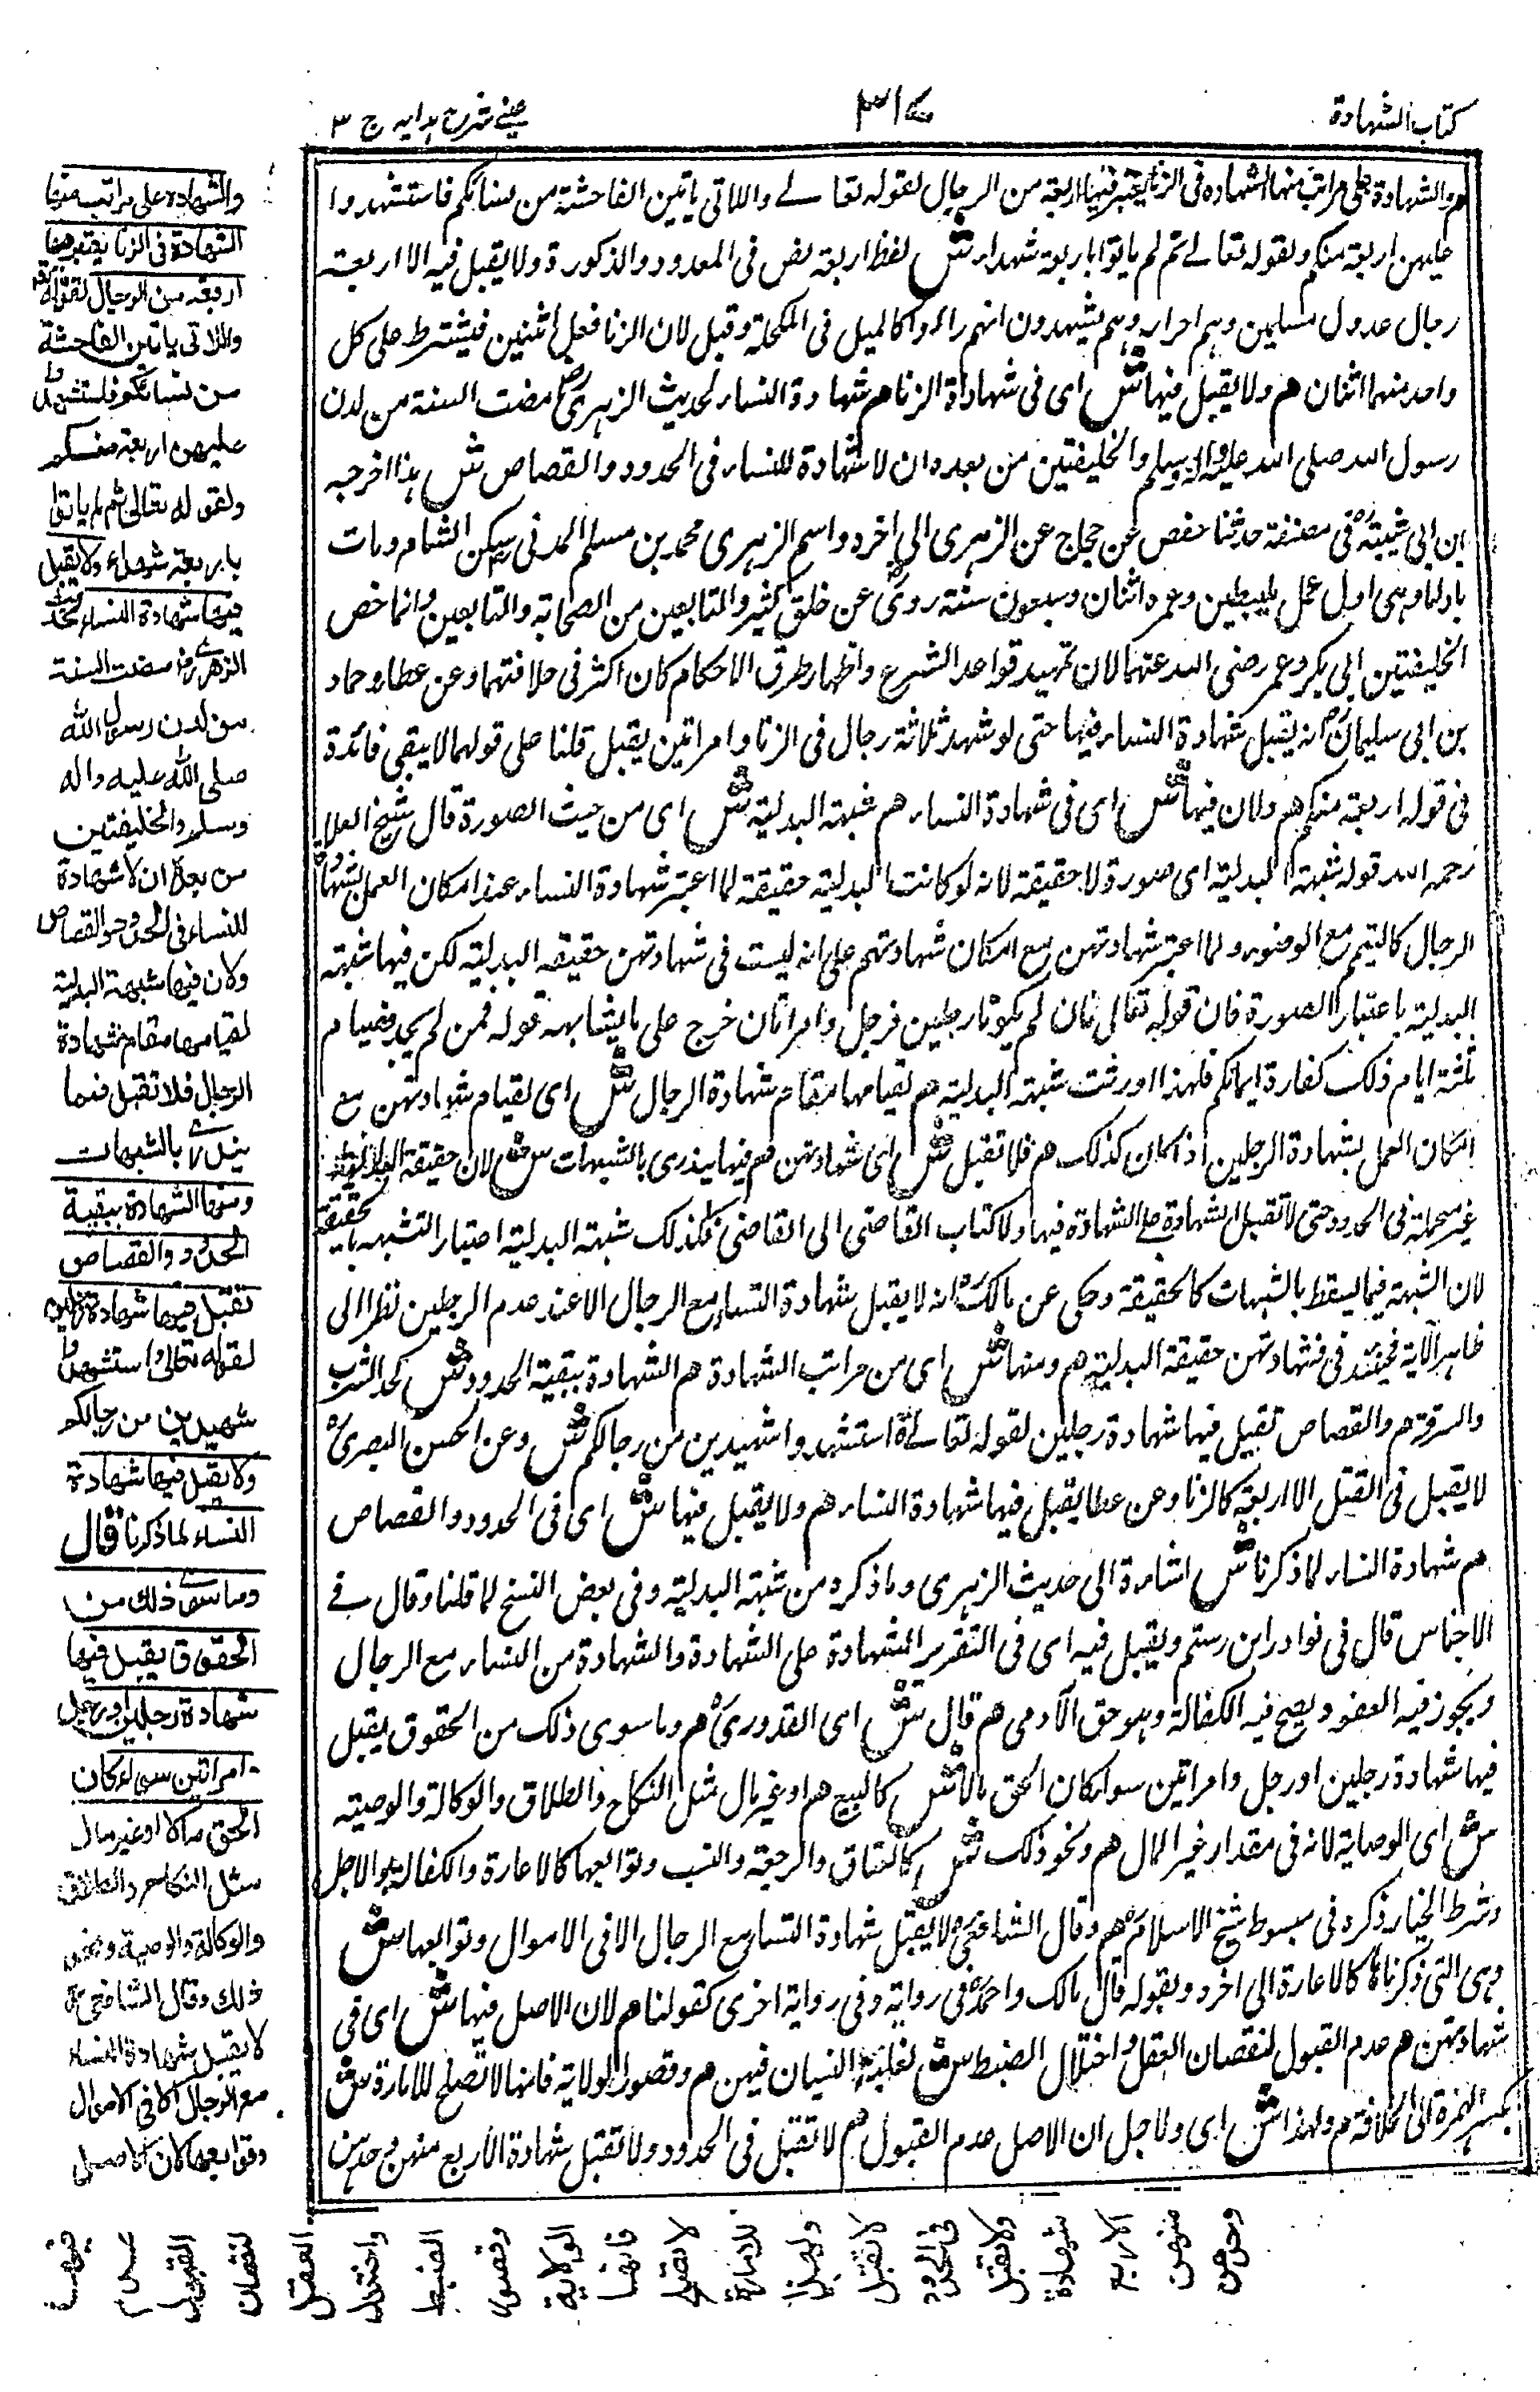 كتاب الشهادة
٣١٤
عيني شرح هدايه ج ٣
هم والشهادة على مراتب منها الشهادة في الزنا يعتبر فيها اربعة من الرجال لقوله تعالے واللاتي ياتين الفاحشة من نسائكم فاستشهدوا
عليهن اربعة منكم ولقوله تعالے ثم لم ياتوا باربعة شهداء ش لفظ اربعة نص في المعدود والذكورة ولا يقبل فيه الا اربعة
رجال عدول مسلمين وهم احرار وهم يشهدون انهم راوا كالميل في المكحلة وقيل لان الزنا فعل اثنين فيشترط على كل
واحد منهما اثنان هم ولا يقبل فيها ش اى في شهادة الزنا هم شهادة النساء لحديث الزهرى مضت السنة من لدن
رسول الله صلى الله عليه واله وسلم والخليفتين من بعده ان لا شهادة للنساء في الحدود والقصاص ش هذا اخرجه
ابن ابي شيبة في مصنفه حدثنا حفص عن حجاج عن الزهرى الى اخره واسم الزهرى محمد بن مسلم المدنى سكن الشام ومات
وعمره اثنان وسبعون سنة روى عن خلق كثير والتابعين من الصحابة والتابعين وانما خص
الخليفتين ابى بكر وعمر رضى الله عنهما لان تمهيد قواعد الشرع واظهار طرق الاحكام كان اكثر في خلافتهما وعن عطاء وحماد
بن ابى سليمان انه يقبل شهادة النساء فيها حتى لو شهد ثلاثة رجال في الزنا وامراتين يقبل قلنا على قولهما لا يبقى فائدة
في قوله اربعة منكم هم ولان فيها ش اى في شهادة النساء هم شبهة البدلية ش اى من حيث الصورة قال شيخ العلا
رحمه الله قوله شبهة البدلية اى صورة لا حقيقة لانه لو كانت البدلية حقيقة لما اعتبر شهادة النساء عند امكان العمل بشهادة
الرجال كالتيمم مع الوضوء ولما اعتبر شهادتهن مع امكان شهادتهم على انه ليست في شهادتهن حقيقه البدلية لكن فيها شبهة
البدلية باعتبار الصورة فان قوله تعالى فان لم يكونا رجلين فرجل وامراتان خرج على ما يشابهه قوله فمن لم يجد فصيام
ثلثة ايام ذلك كفارة ايمانكم فلهذا اورثت شبهة البدلية هم لقيامها مقام شهادة الرجال ش اى لقيام شهادتهن مع
امكان العمل بشهادة الرجلين اذ كان كذلك هم فلا تقبل ش اى شهادتهن هم فيها يندرى بالشبهات ش لان حقيقة البدلية
غير محملة في الحدود حتى لا تقبل الشهادة على الشهادة فيها ولا كتاب القاضى الى القاضى فكذلك شبهة البدلية اعتبار الشبهه بالحقيقة
لان الشبهة فيما يسقط بالشبهات كالحقيقة وحكى عن مالك انه لا يقبل شهادة النساء مع الرجال الا عند عدم الرجلين نظرا الى
ظاهر الآية فحينئذ في شهادتهن حقيقة البدلية هم ومنها ش اى من مراتب الشهادة هم الشهادة ببقية الحدود ش كحد الشرب
والسرقة هم والقصاص تقبل فيها شهادة رجلين لقوله تعالے استشهدوا شهيدين من رجالكم ش وعن الحسن البصرى
لا يقبل في القتل الا اربعة كالزنا وعن عطا يقبل فيها شهادة النساء هم ولا يقبل فيها ش اى في الحدود والقصاص
هم شهادة النساء لما ذكرنا ش اشارة الى حديث الزهرى وما ذكره من شبهة البدلية وفي بعض النسخ لما قلنا وقال في
الاجناس قال في نوادر ابن رستم ويقبل فيه اى في التقرير الشهادة على الشهادة والشهادة من النساء مع الرجال
ويجوز فيه العفو ويصح فيه الكفالة وهو حق الآدمى هم قال ش اى القدورى هم وما سوى ذلك من الحقوق يقبل
فيها شهادة رجلين او رجل وامراتين سواء كان الحق مالا ش كالبيع هم او غير مال مثل النكاح والطلاق والوكالة والوصية
ش اى الوصاية لانه في مقدار غير المال هم ونحو ذلك ش كالعتاق والرجعة والنسب وتوابعها كالاعارة والكفالة والاجل
وشرط الخيار ذكره في مبسوط شيخ الاسلام هم وقال الشافعى لا يقبل شهادة النساء مع الرجال الا في الاموال وتوابعها ش
وهى التى ذكرناها كالاعارة الى اخره وبقوله قال مالك واحمد في رواية وفي رواية اخرى كقولنا هم لان الاصل فيها ش اى في
شهادتهن هم عدم القبول لنقصان العقل واختلال الضبط ش لغلبة النسيان فيهن هم وقصور الولاية فانها لا تصلح للامارة ش
بكسر الهمزة اى الخلافة هم ولهذا ش اى ولاجل ان الاصل عدم القبول هم لا تقبل في الحدود ولا تقبل شهادة الاربع منهن وحدهن
والشهادة على مراتب منها
الشهادة فى الزنا يعتبر فيها
اربعة من الرجال لقوله تعالى
واللاتى ياتين الفاحشة
من نسائكم فاستشهدوا
عليهن اربعة منكم
ولقوله تعالى ثم لم ياتوا
باربعة شهداء ولا يقبل
فيها شهادة النساء لحديث
الزهرى رض مضت السنة
من لدن رسول الله
صلى الله عليه واله
وسلم والخليفتين
من بعده ان لا شهادة
للنساء فى الحدود والقصاص
ولان فيها شبهة البدلية
لقيامها مقام شهادة
الرجال فلا تقبل فيما
يندرى بالشبهات
ومنها الشهادة ببقية
الحدود والقصاص
تقبل فيها شهادة رجلين
لقوله تعالى واستشهدوا
شهيدين من رجالكم
ولا يقبل فيها شهادة
النساء لما ذكرنا قال
وما سوى ذلك من
الحقوق يقبل فيها
شهادة رجلين او رجل
وامراتين سواء كان
الحق مالا او غير مال
مثل النكاح والطلاق
والوكالة والوصية ونحو
ذلك وقال الشافعى
لا يقبل شهادة النساء
مع الرجال الا فى الاموال
وتوابعها لان الاصل
فيها
عدم
القبول
لنقصان
العقل
واختلال
الضبط
وقصور
الولاية
فانها
لا تصلح
للامارة
ولهذا
لا تقبل
فى الحدود
ولا تقبل
شهادة
الاربع
منهن
وحدهن